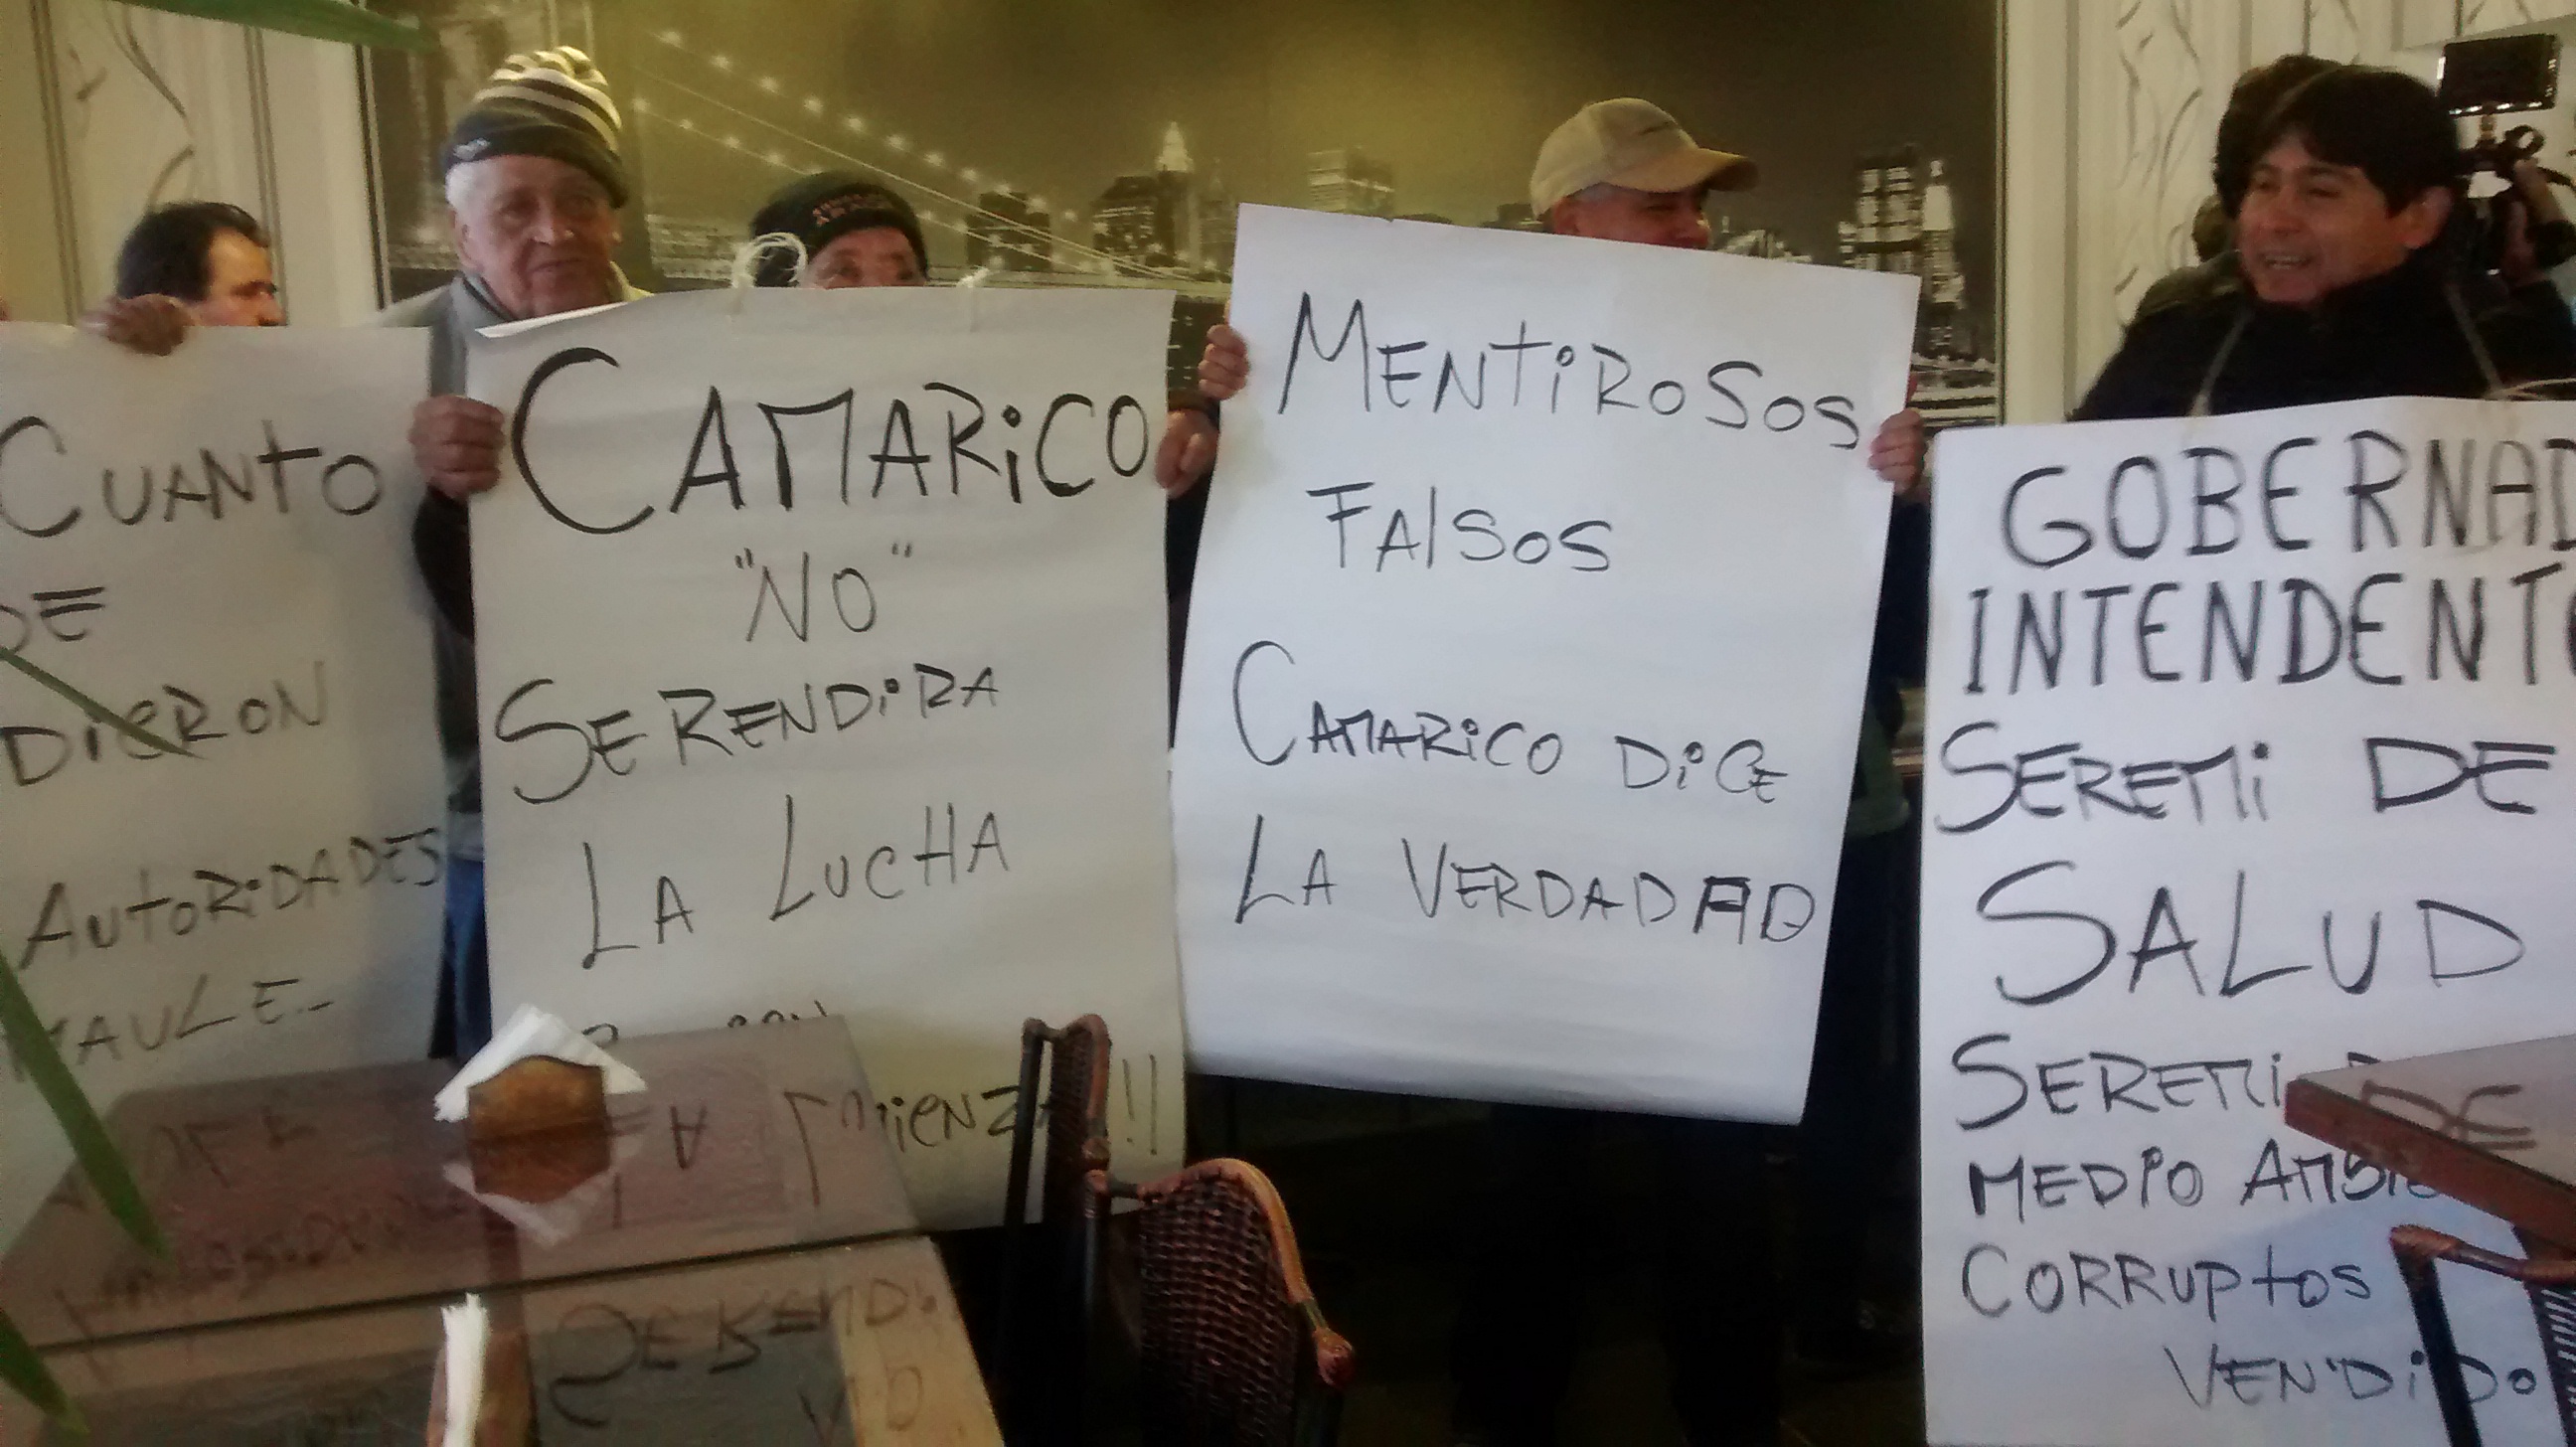 CUANTO
DE
DIERON
AUTORIDADES
MAULE_
CAMARICO
"NO"
SE RENDIRA
LA LUCHA
MENTIROSOS
FALSOS
CAMARICO DICE
LA VERDADAD
GOBERNAD
INTENDENT
SEREMI DE
SALUD
SEREMI
MEDIO
CORRUPTOS
VENDIDO